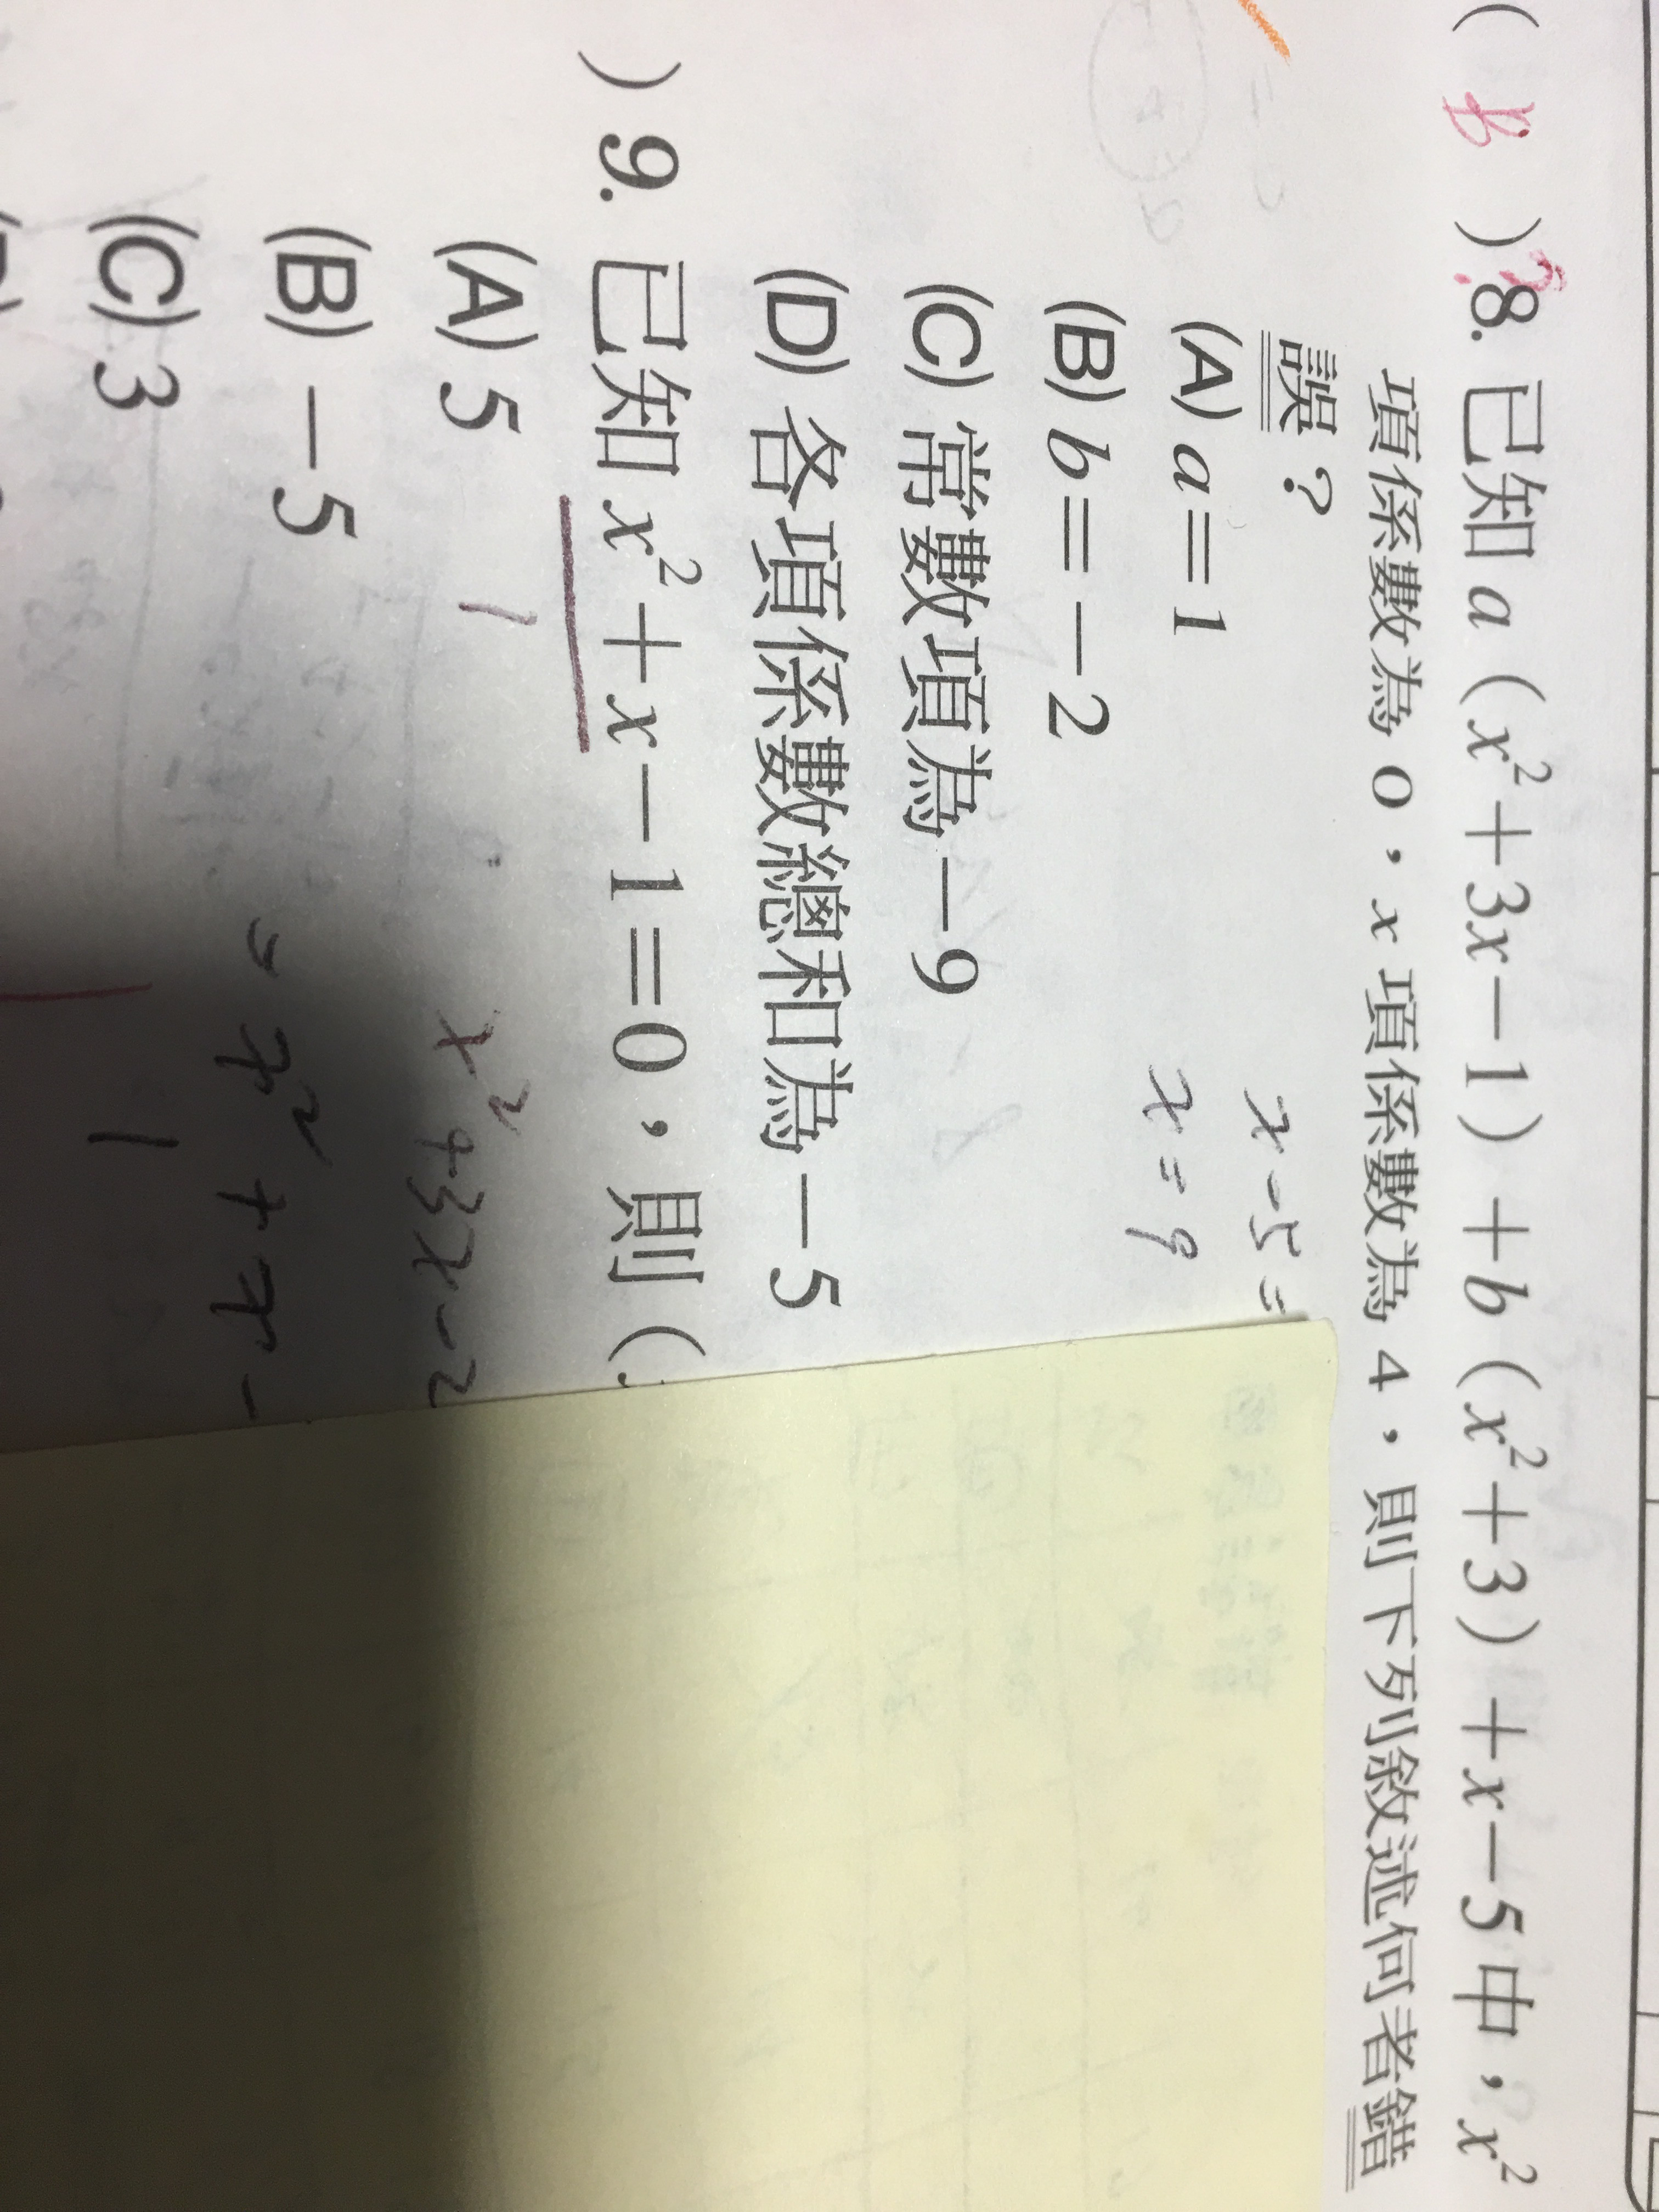 ( B )8. 已知 a (x²+3x-1)+b (x²+3)+x-5中，x²
項係數為 0，x 項係數為 4，則下列敘述何者錯
誤？
(A) a=1
(B) b=-2
(C) 常數項為-9
(D) 各項係數總和為-5
x-5=
x=9
) 9. 已知 x²+x-1=0，則 (
(A) 5
(B) -5
(C) 3
1
x²+3x-2
= x²+x-
1